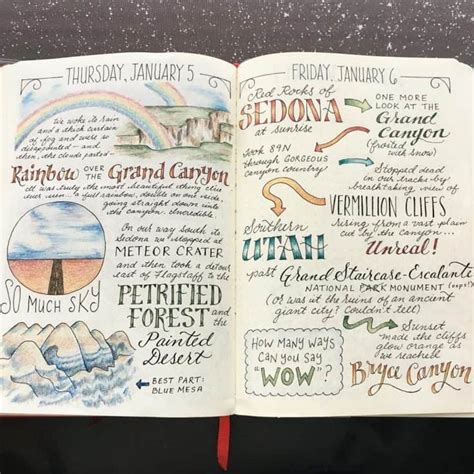 THURSDAY, JANUARY 5
We woke to rain
and a thick curtain
of fog and were so
disappointed – and
then, the clouds parted –
RAINBOW OVER THE GRAND CANYON
It was truly the most beautiful thing I've
ever seen... a full rainbow, double on one side,
going straight down into
the canyon. Incredible.
On our way south to
Sedona we stopped at
METEOR CRATER
and then took a detour
east of Flagstaff to the
PETRIFIED
FOREST and
the
Painted
Desert
SO MUCH SKY
BEST PART:
BLUE MESA
FRIDAY, JANUARY 6
Red Rocks of
SEDONA
at sunrise
ONE MORE
LOOK AT THE
Grand
Canyon
(frosted
with snow)
Took 89N
through gorgeous
canyon country
Stopped dead
in our tracks by
breathtaking view of
VERMILLION CLIFFS
rising from a vast plain
cut by the canyon...
Unreal!
Southern
UTAH
past Grand Staircase-Escalante
NATIONAL PARK MONUMENT (oops!)
(or was it the ruins of an ancient
giant city? Couldn't tell)
HOW MANY WAYS
CAN YOU SAY
"WOW"?
Sunset
made the cliffs
glow orange as
we reached
Bryce Canyon